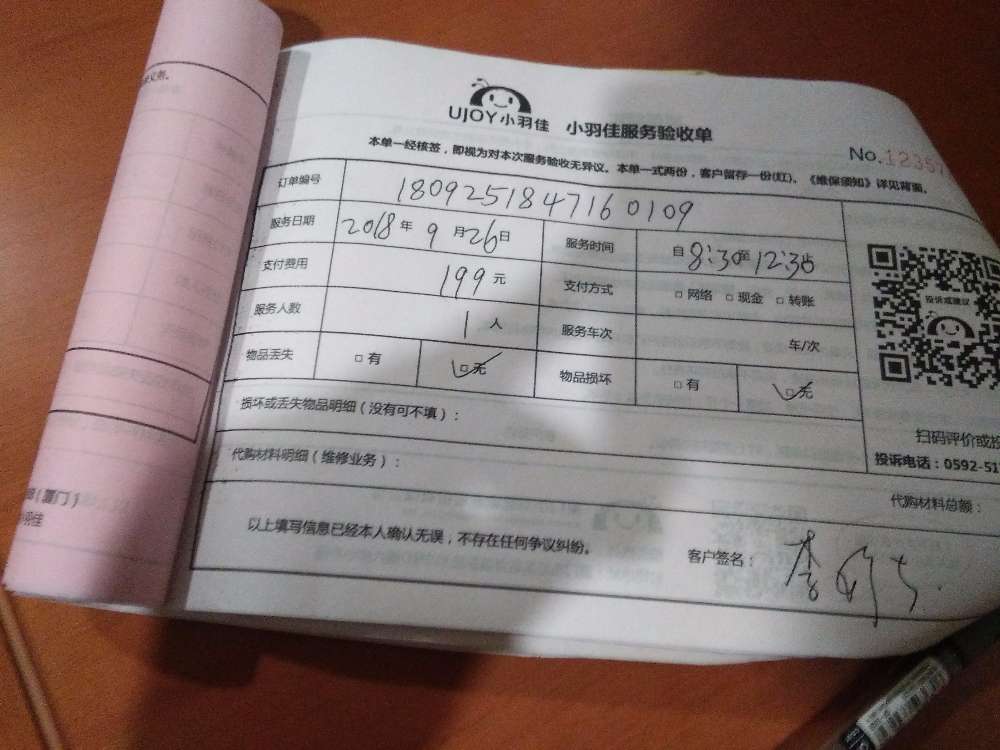 UJOY小羽佳 小羽佳服务验收单
本单一经核签，即视为对本次服务验收无异议。本单一式两份，客户留存一份(红)。《维保须知》详见背面。
No.12357
订单编号 180925184716 0109
服务日期 2018年 9月26日 服务时间 自8:30至12:30
支付费用 199元 支付方式 □网络 □现金 □转账
服务人数 1人 服务车次 车/次
物品丢失 □有 □无 物品损坏 □有 □无
损坏或丢失物品明细（没有可不填）：
代购材料明细（维修业务）：
代购材料总额：
以上填写信息已经本人确认无误，不存在任何争议纠纷。
客户签名：李
投诉或建议
扫码评价或投
投诉电话：0592-51
（厦门）
羽佳